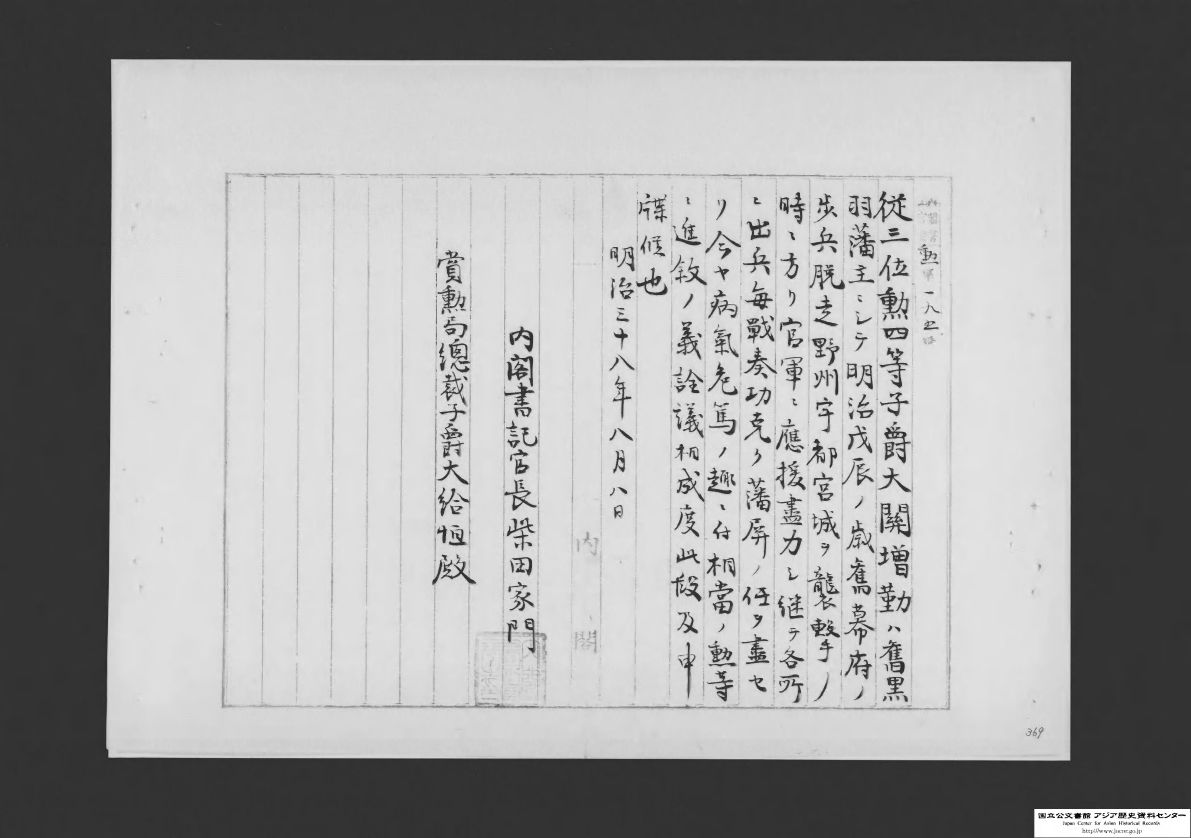 勲第一八五号
従三位勲四等子爵大關増勤ハ舊黒
羽藩主ニシテ明治戊辰ノ歳舊幕府ノ
歩兵脱走野州宇都宮城ヲ襲撃ノ
時ニ方リ官軍ニ應援盡力シ継テ各所
ニ出兵毎戰奏功克ク藩屏ノ任ヲ盡セ
リ今ヤ病氣危篤ノ趣ニ付相當ノ勲等
ニ進敘ノ義詮議相成度此段及申
牒候也
明治三十八年八月八日
内閣
内閣書記官長柴田家門
賞勲局總裁子爵大給恒殿
369
国立公文書館 アジア歴史資料センター
Japan Center for Asian Historical Records
http://www.jacar.go.jp